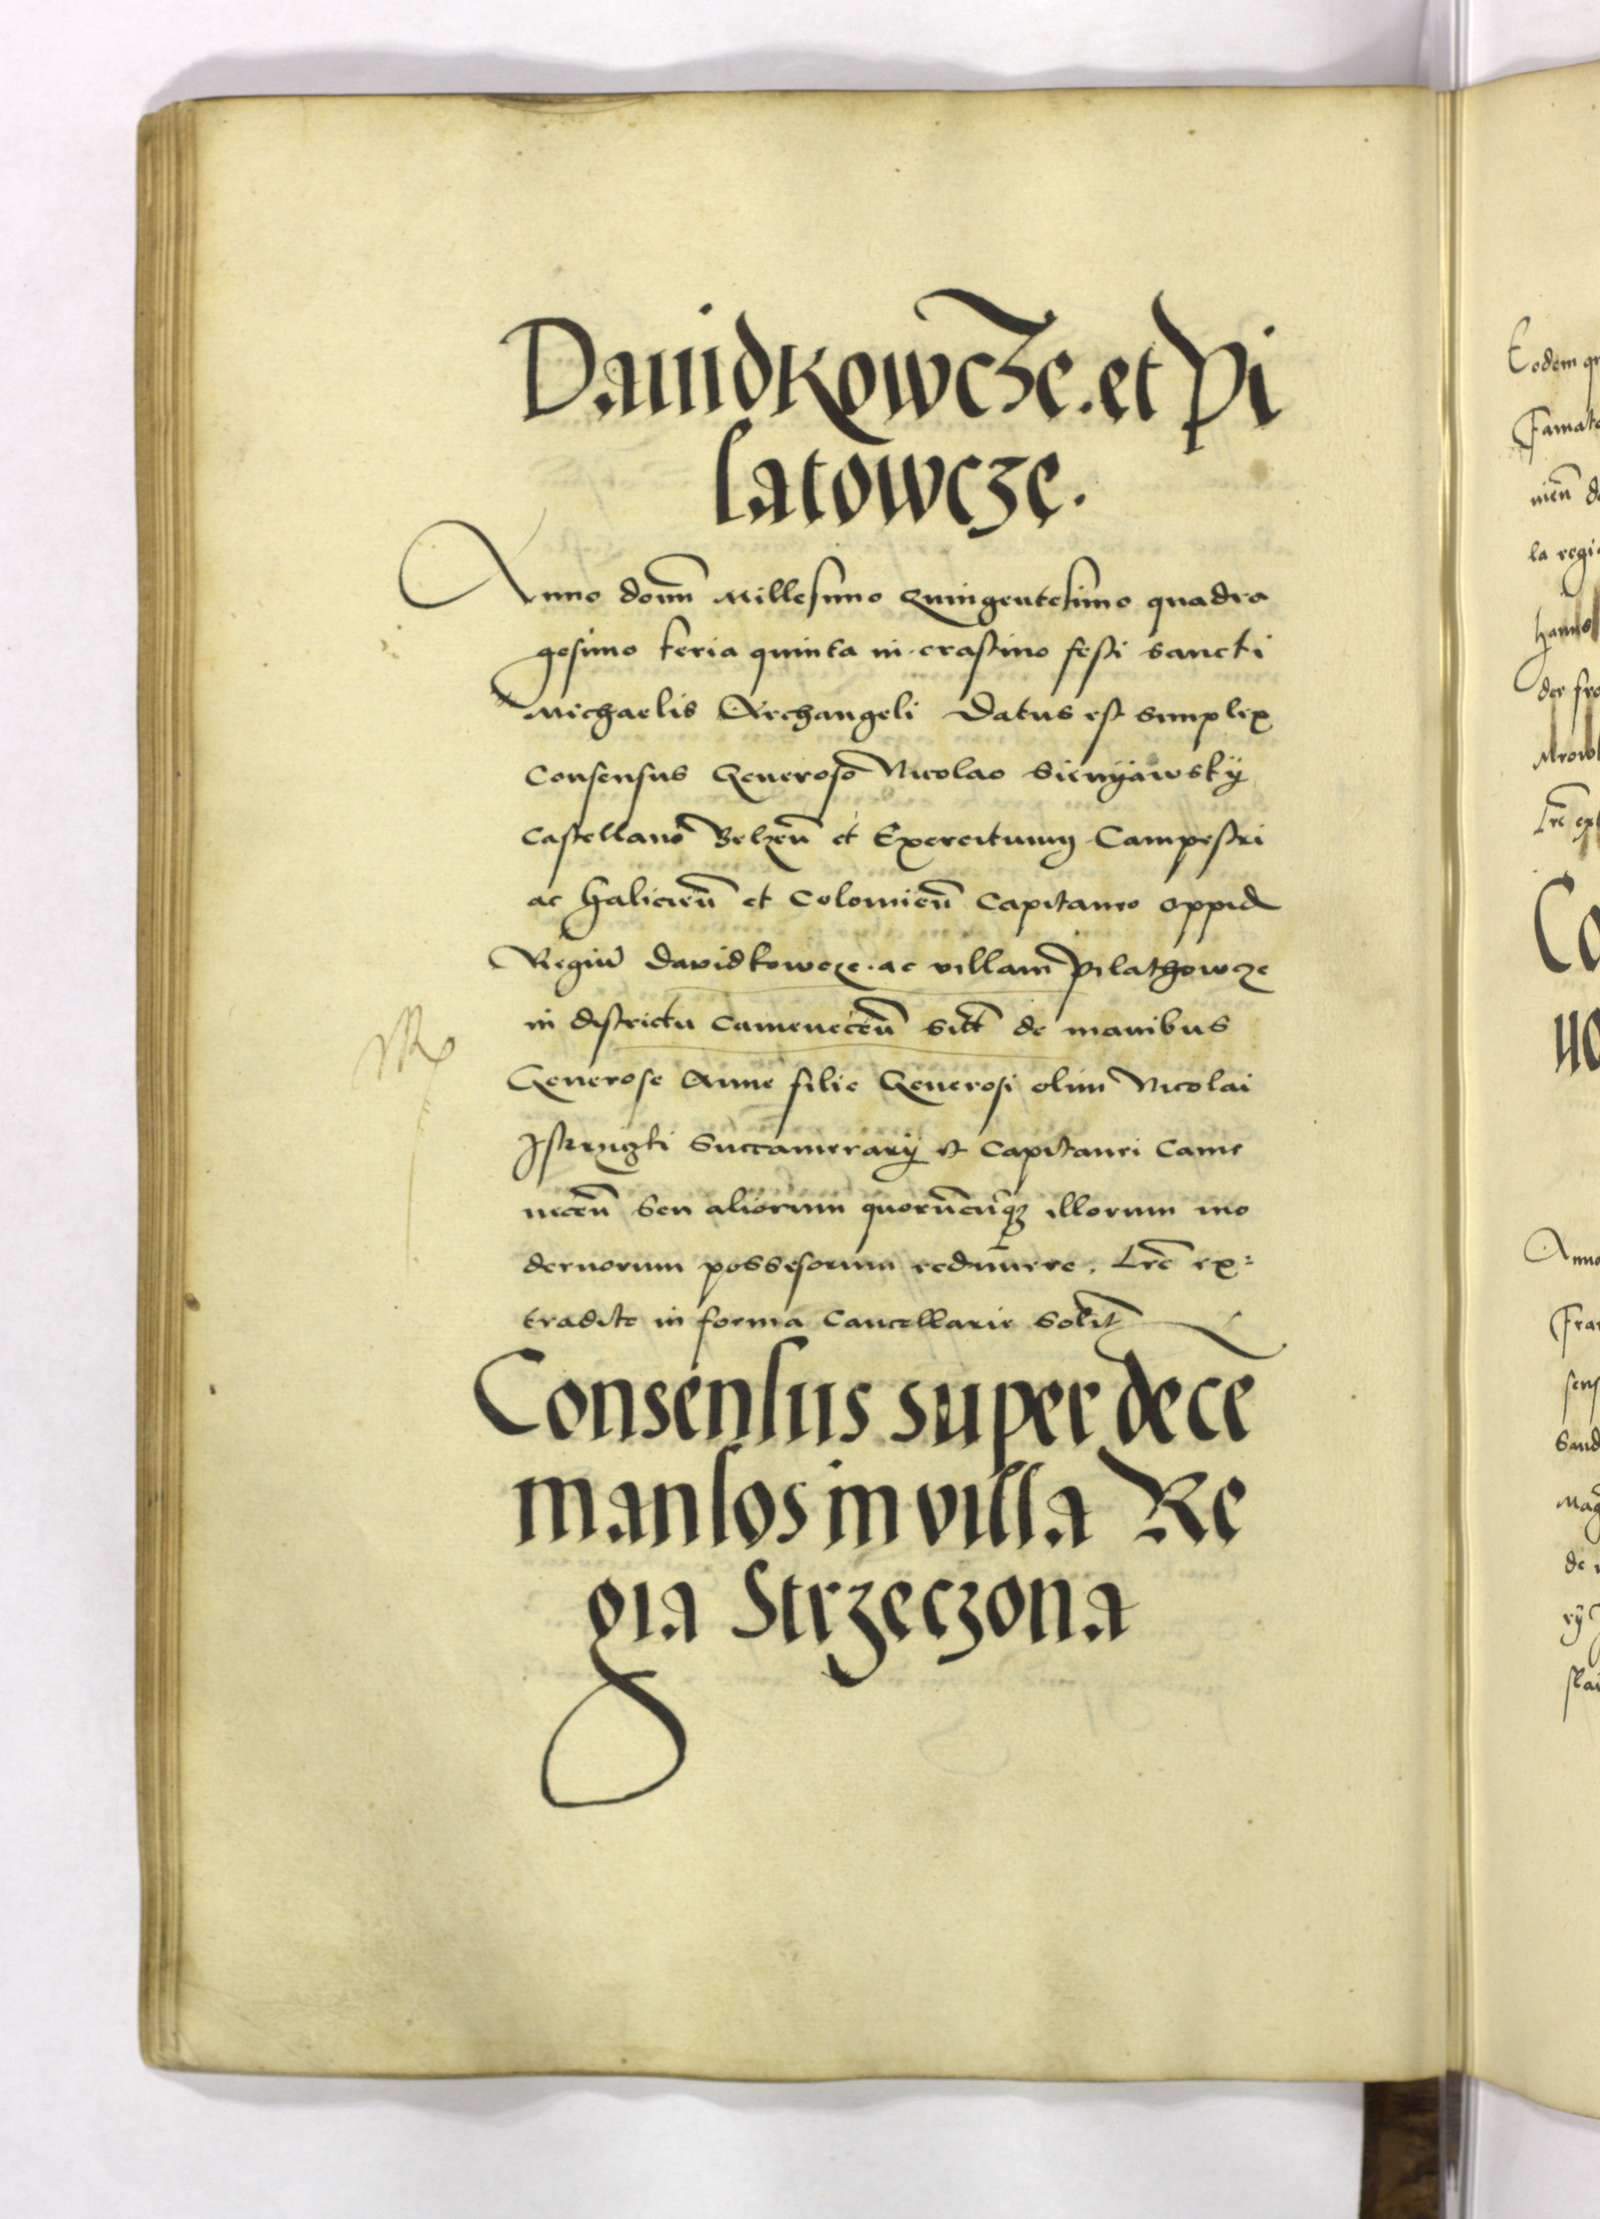 Dauidkowcze. et Pi
latowcze.
Anno domi Millesimo Quingentesimo quadra
gesimo feria quinta in crastino festi sancti
Michaelis Archangeli Datus est simplex
Consensus Generoso Nicolao Sienyawsky
Castellano Belzeñ et Exercituum Campestri
ac Halicieñ et Colomieñ Capitaneo oppid
Regiu Davidkowcze. ac villam Pilathowcze
in districtu Cameneceñ sitt de manibus
Generose Anne filie Generosi olim Nicolai
Succamerarij et Capitanei Came
neceñ seu aliorum quorucuqz illorum mo
dernorum possesorum redimere. Lre ex:
tradite in forma Cancellarie Solit
Consensus super dece
mansos in villa Re
gia Strzeczona
Eodem
nieñ
la
der
Co
no
Anno
de